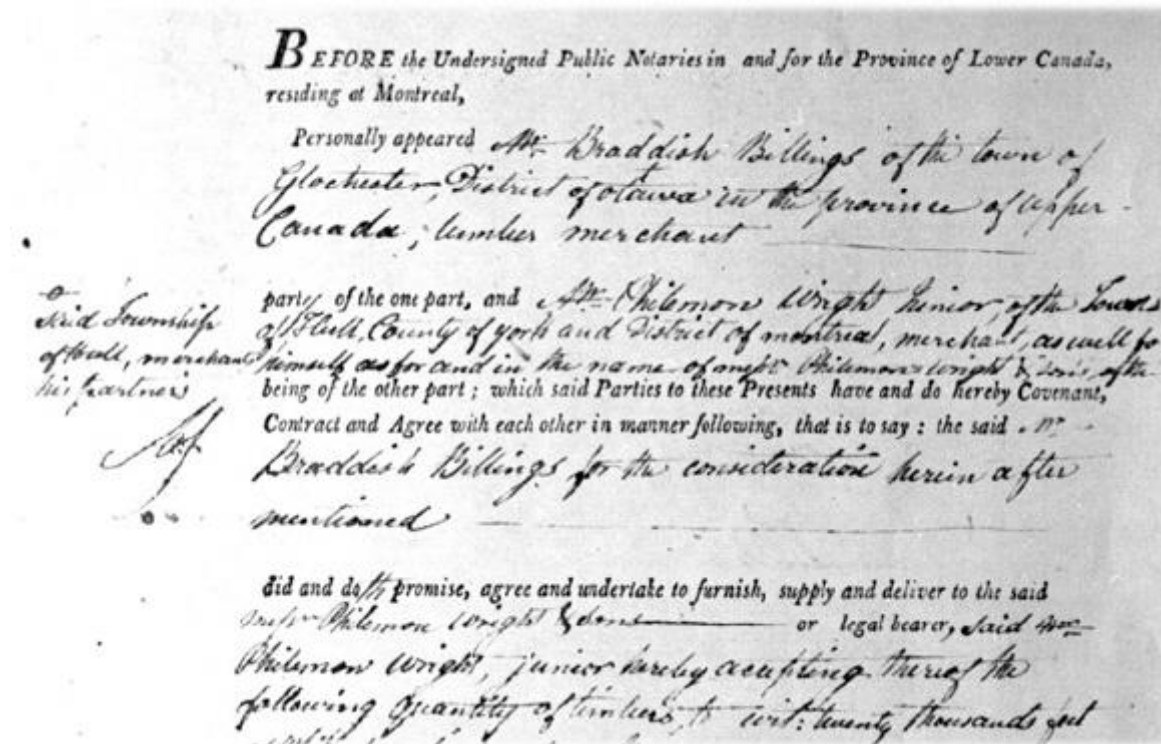 BEFORE the Undersigned Public Notaries in and for the Province of Lower Canada,
residing at Montreal,
Personally appeared Mr. Braddish Billings of the town of
Glochester, District of otawa in the province of upper
Canada, lumber merchant
party of the one part, and Mr. Philemon Wright Junior, of the Towns
of Hull, County of york and District of montreal, merchant, as well for
himself as for and in the name of messrs Philemon wright & sons, of the
said Township
of Hull, merchant
his partners
being of the other part; which said Parties to these Presents have and do hereby Covenant,
Contract and Agree with each other in manner following, that is to say: the said Mr
Braddish Billings for the consideration herein after
mentioned
did and doth promise, agree and undertake to furnish, supply and deliver to the said
messrs Philemon wright & sons or legal bearer, said
Philemon wright, junior hereby accepting thereof the
following quantity of timbers, to wit: twenty thousands feet